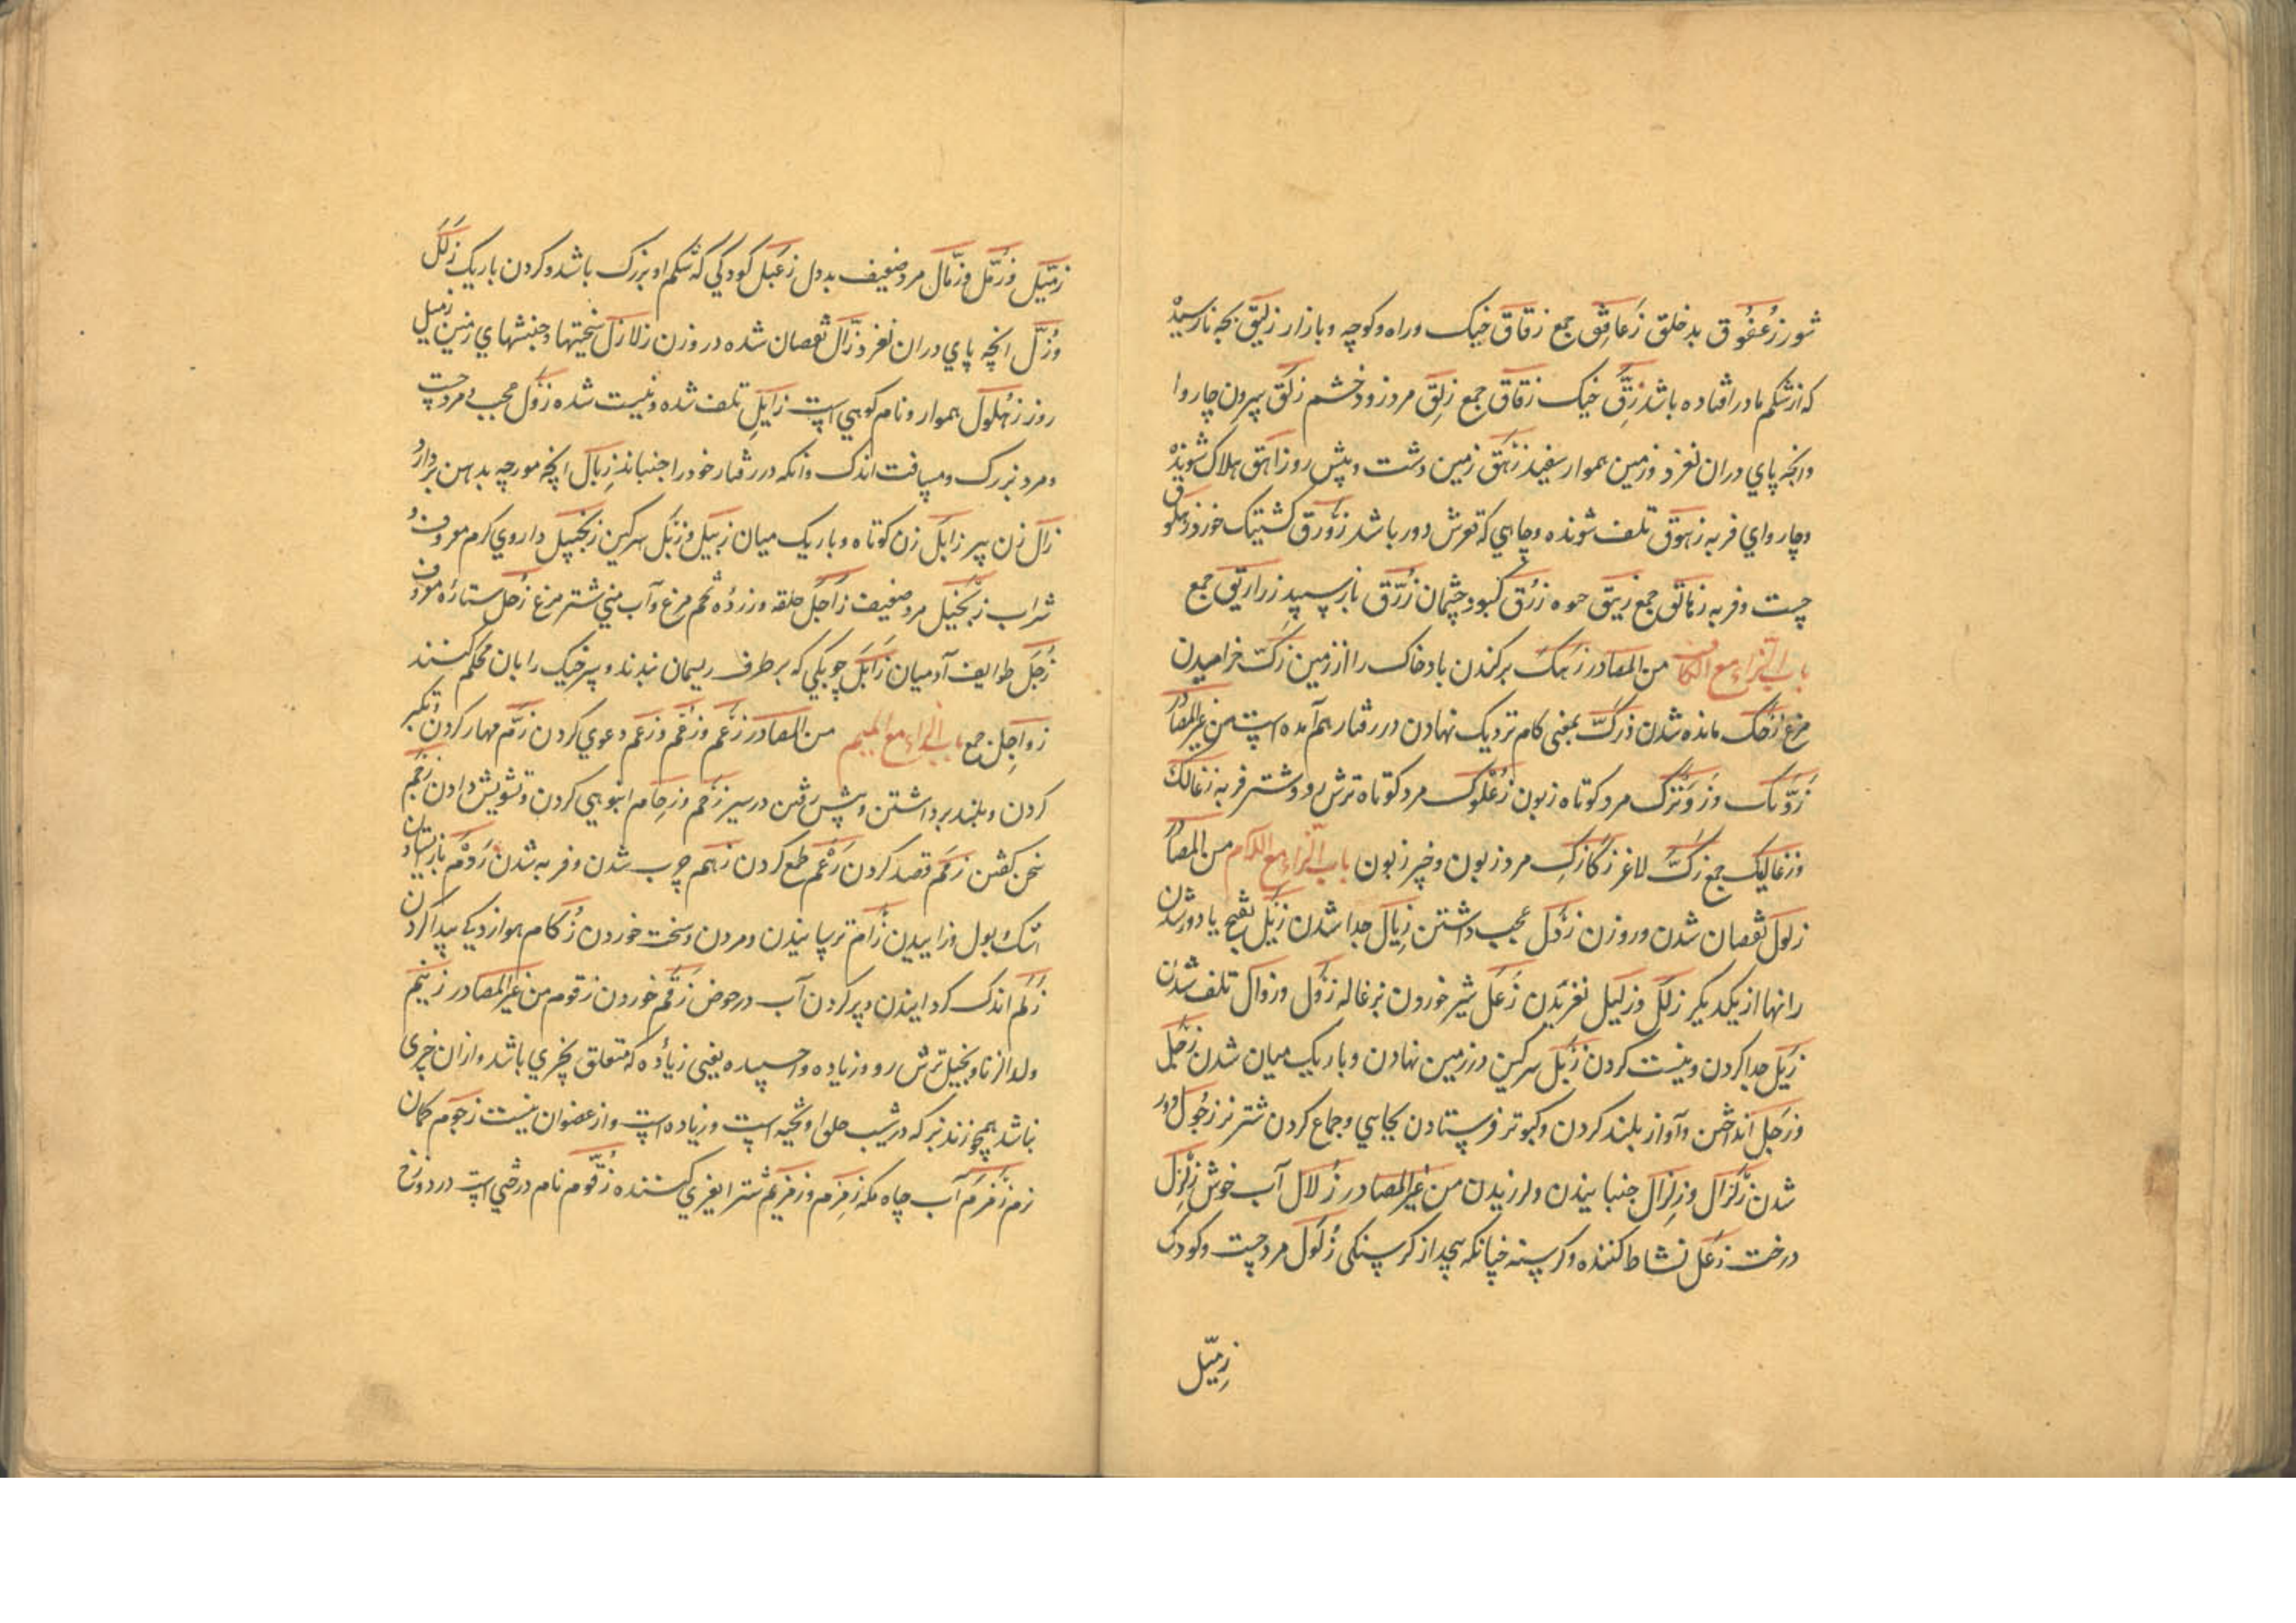 شور زُعقُوق بدخلق زَعاقِق جمع زقاق خیک و راه و کوچه و بازار زلیق بچه نارسیده
که از شکم مادر افتاده باشد زِقّ خیک زقاق جمع زلِق مرد زود خشم زلَق سرون چاروا
و انچه پای دران لغزد و زمین هموار سفید زَهَق زمین دشت و پیش رو زاهق هلاک شونده
و چاروای فربه زهوق تلف شونده و چاهی که قعرش دور باشد زَورَق کشتیک خورد زملوق
چست و فربه زمالق جمع زیق زُرق کبود چشمان زُرّق باز سپید زراریق جمع
باب الزاء مع الکاف من المصادر زهک برکندن باد خاک را از زمین زکّ خرامیدن
مرغ زحک مانده شدن زکّ بمعنی کام نزدیک نهادن در رفتار هم آمده است من غیر المصادر
زَوّنک و زَوَنزک مرد کوتاه زبون زُعلوک مرد کوتاه ترش رو و شتر فربه زعالک
و زعالیک جمع زکّ لاغر زکازک مرد زبون و چیز زبون باب الزاء مع اللام من المصادر
زلول نقصان شدن در وزن زَول عجب داشتن زِیال جدا شدن زَیَل بقبح یا دور شدن
رانها از یکدیگر زلَل و زلیل لغزیدن زَعل شیر خوردن بزغاله زَول و زوال تلف شدن
زَیل جدا کردن و نیست کردن زَبل سرکین در زمین نهادن و باریک میان شدن زَجل
و زَجَل انداختن و آواز بلند کردن و کبوتر فرستادن بجایی و جماع کردن شتر نر زحول دور
شدن زَلزال و زِلزال جنبانیدن و لرزیدن من غیر المصادر زُلال آب خوش زلزل
درخت زعَل نشاط کننده و گرسنه چنانکه بیچد از گرسنگی زُلول مرد چست و کودک
زمّیل
زمّیل و زمّل و زمّال مرد ضعیف بددل زعبل کودکی که شکم او بزرگ باشد و گردن باریک زلَل
و زلّ انچه پای دران لغزد زالّ نقصان شده در وزن زلازل سختیها و جنبشهای زمین زمیل
روز زُهلول هموار و نام کوهی است زایل تلف شده و نیست شده زَول عجب و مرد چست
و مرد بزرگ و مسافت اندک و انکه در رفتار خود را جنباند زِبال انچه مورچه بدهن بردارد
زال زن پیر زابل زن کوتاه و باریک میان زبیل و زبل سرکین زنجبیل داروی گرم معروف و
شراب زنجیل مرد ضعیف زاجَل حلقه و زرده تخم مرغ و آب منی شتر مرغ زُحل ستاره معروف
زُجَل طوایف آدمیان زاجَل چوبکی که بر طرف ریسمان بندند و سر خیک را بان محکم کنند
زواجل جمع باب الزاء مع المیم من المصادر زَعم و زُعم و زِعم دعوی کردن زَمّ مهار کردن و تکبر
کردن و بلند برداشتن و پیش رفتن در سیر زَحم و زِحام انبوهی کردن و تشویش دادن زَجم
سخن گفتن زَمَم قصد کردن زَعَم طمع کردن زَهَم چرب شدن و فربه شدن زَرم باز ایستادن
اشک و بول و زاییدن زُام ترسانیدن و مردن و سخت خوردن زُکام هوازدیکی پیدا کردن
زَلم اندک گردانیدن و پر کردن آب در حوض زَقم خوردن زقوم من غیر المصادر زنیم
ولد الزنا و بخیل ترش رو و زیاده یعنی زیاده که متعلق بچیزی باشد و ازان چیزی
نباشد همچو زند بز که در شیب حلق او آویخته است و زیاده است و از عضو آن نیست زجوم کمان
نرم زَمزم آب چاه مکه زِمزم و زمزیم شتر بسیار کننده زَقّوم نام درختی است در دوزخ